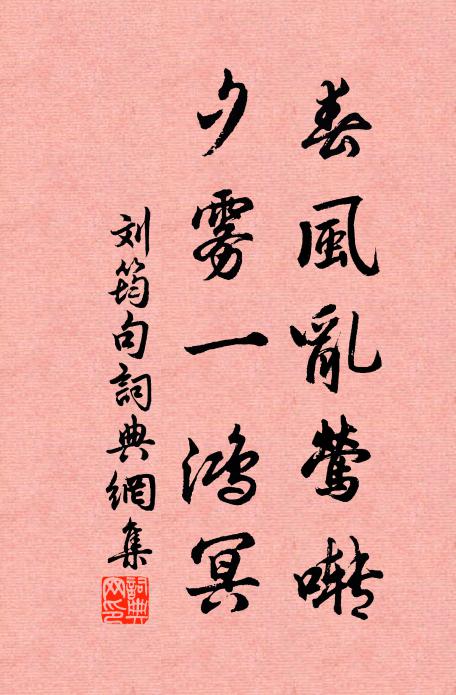 春風亂莺啭
夕雾一鴻冥
刘筠句詞典網集
詞典網印